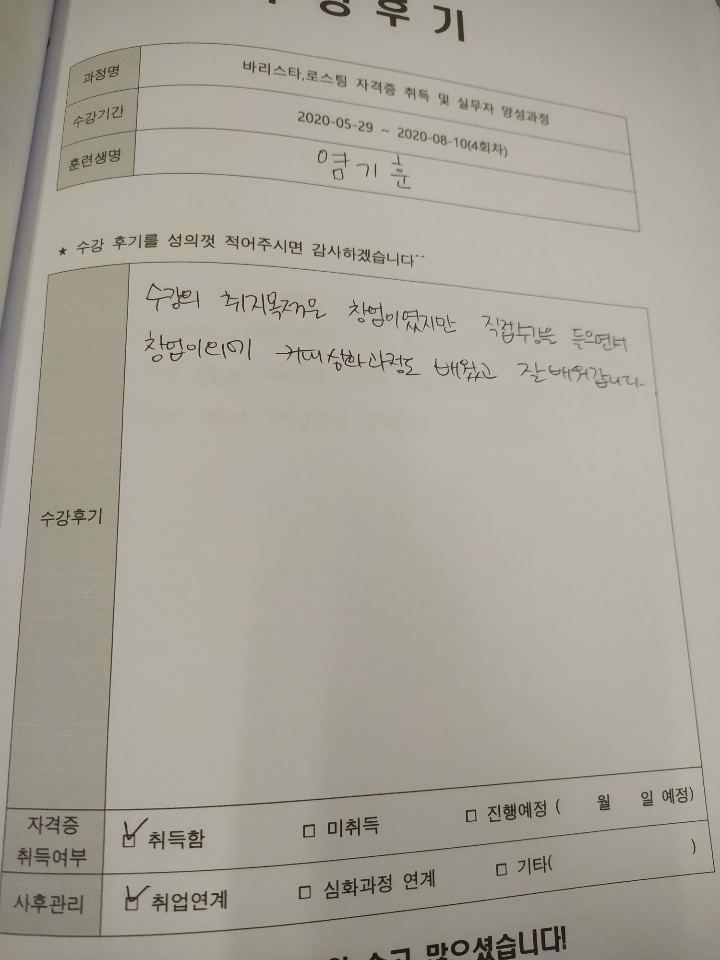 수강후기
과정명 바리스타,로스팅 자격증 취득 및 실무자 양성과정
수강기간 2020-05-29 ~ 2020-08-10(4회차)
훈련생명 염기훈
★ 수강 후기를 성의껏 적어주시면 감사하겠습니다^^
수강의 취지목적은 창업이였지만 직접수강을 들으면서
창업이외에 커피심화과정도 배웠고 잘 배워갑니다.
수강후기
자격증
취득여부
☑ 취득함 □ 미취득 □ 진행예정 ( 월 일 예정)
사후관리 ☑ 취업연계 □ 심화과정 연계 □ 기타( )
수고 많으셨습니다!